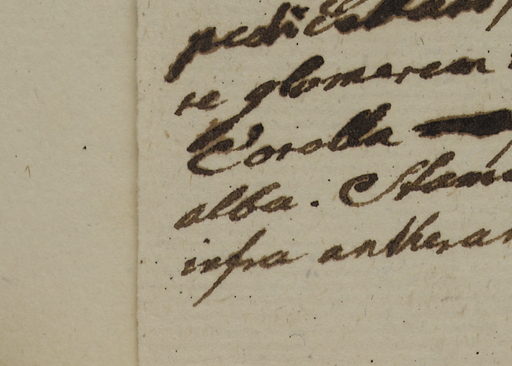 re glomerem
Corolla
alba. Stami
infra antheran